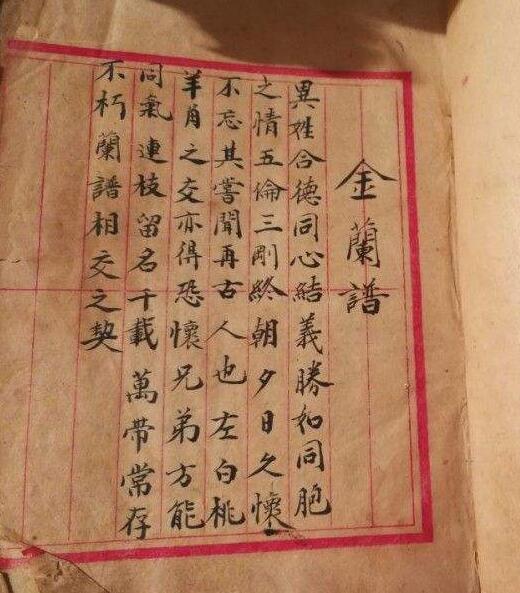 金蘭譜
異姓合德同心結義勝如同胞
之情五倫三剛終朝夕日久懷
不忘其嘗聞再古人也左白桃
羊角之交亦得恐懷兄弟方能
同氣連枝留名千載萬帶常存
不朽蘭譜相交之契